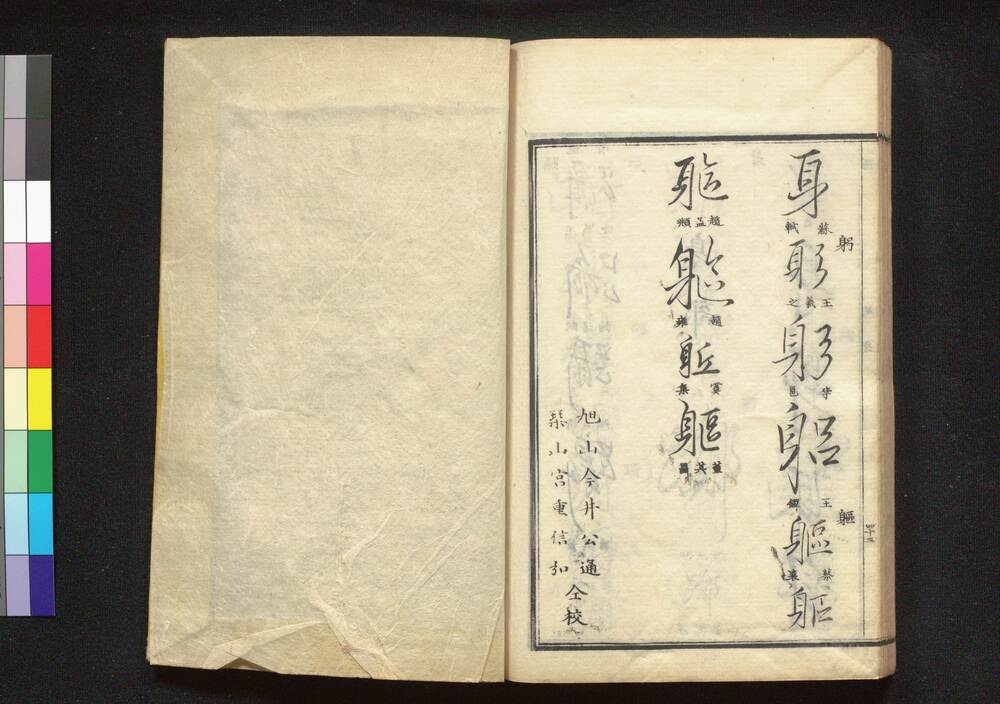 躬
軀
身 蘇軾
躬 王羲之
躬 李邕
躳 王
軀 蔡襄
軀
軀 趙孟頫
軀 趙雍
躯 虞集
軀 董其昌
旭山今井公通
琹山宮重信
仝校